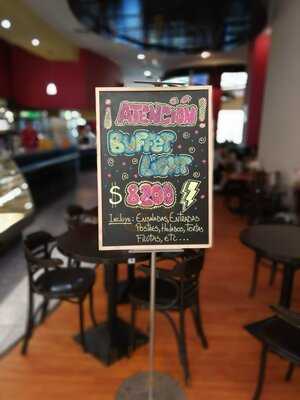 ¡ATENCION!
BUFFET
LIGHT
$8290
Incluye: ENSALADAS, ENTRADAS
POSTRES, HELADOS, TORTAS
FRUTAS, ETC...